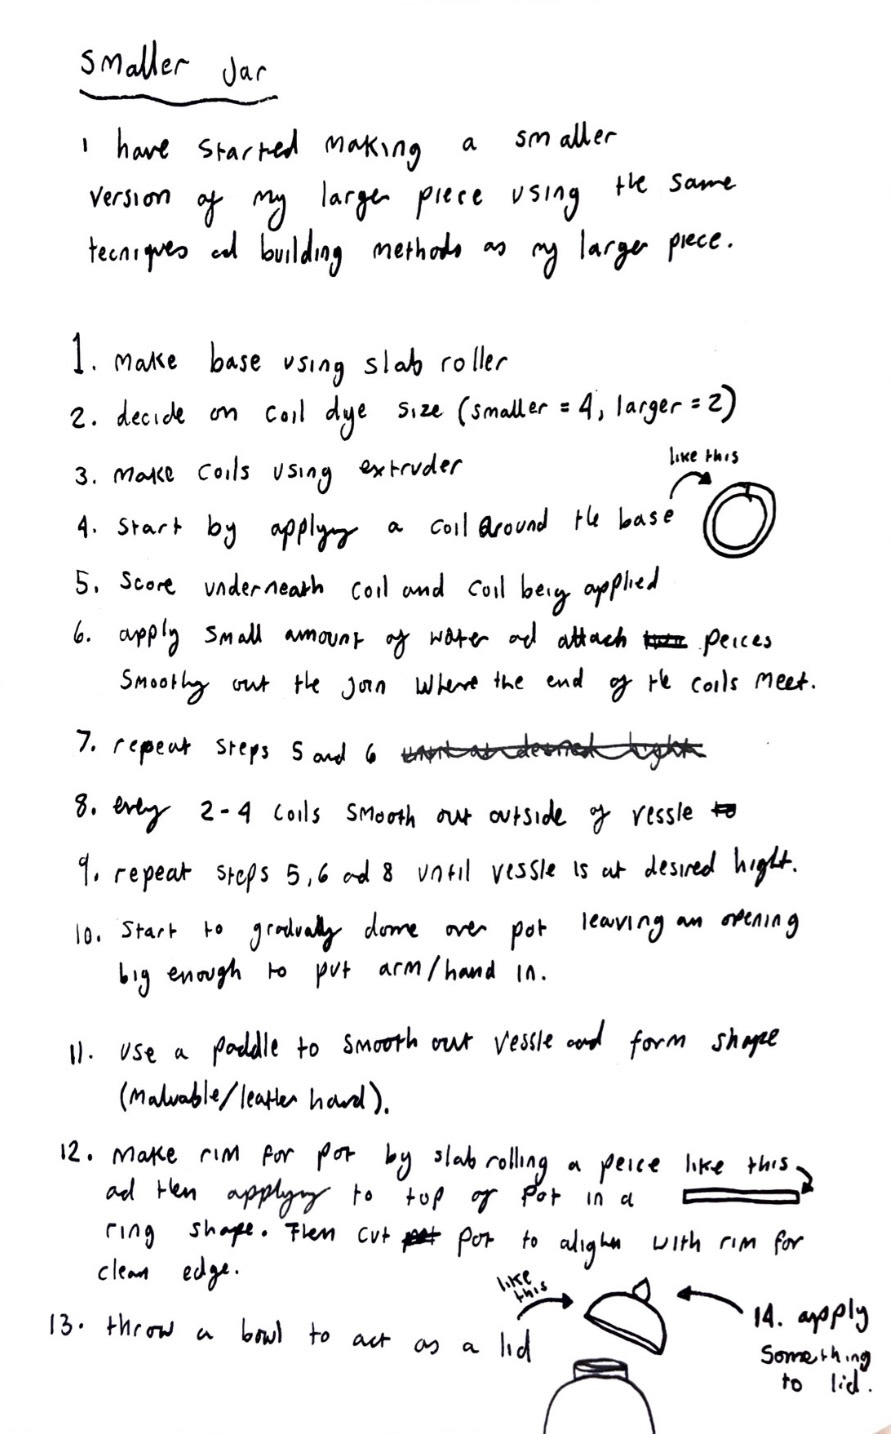 Smaller Jar
I have started making a smaller
version of my larger piece using the same
tecniqves ad building methods as my larger piece.
1. Make base using slab roller
2. decide on coil dye size (smaller = 4, larger = 2)
3. Make coils using extruder
like this
4. Start by applying a coil around the base
5. Score underneath coil and coil being applied
6. apply small amount of water ad attach peices
Smoothly out the join where the end of the coils meet.
7. repeat steps 5 and 6 until at desired hight
8. every 2-4 coils smooth out outside of vessle to
9. repeat steps 5,6 ad 8 until vessle is at desired hight.
10. Start to gradually dome over pot leaving an opening
big enough to put arm/hand in.
11. Use a paddle to smooth out vessle and form shape
(Malvable/leather hard).
12. Make rim for pot by slab rolling a peice like this
ad then applying to top of pot in a
ring shape. Then cut pot to alighn with rim for
clean edge.
like
this
13. throw a bowl to act as a lid
14. apply
Something
to lid.